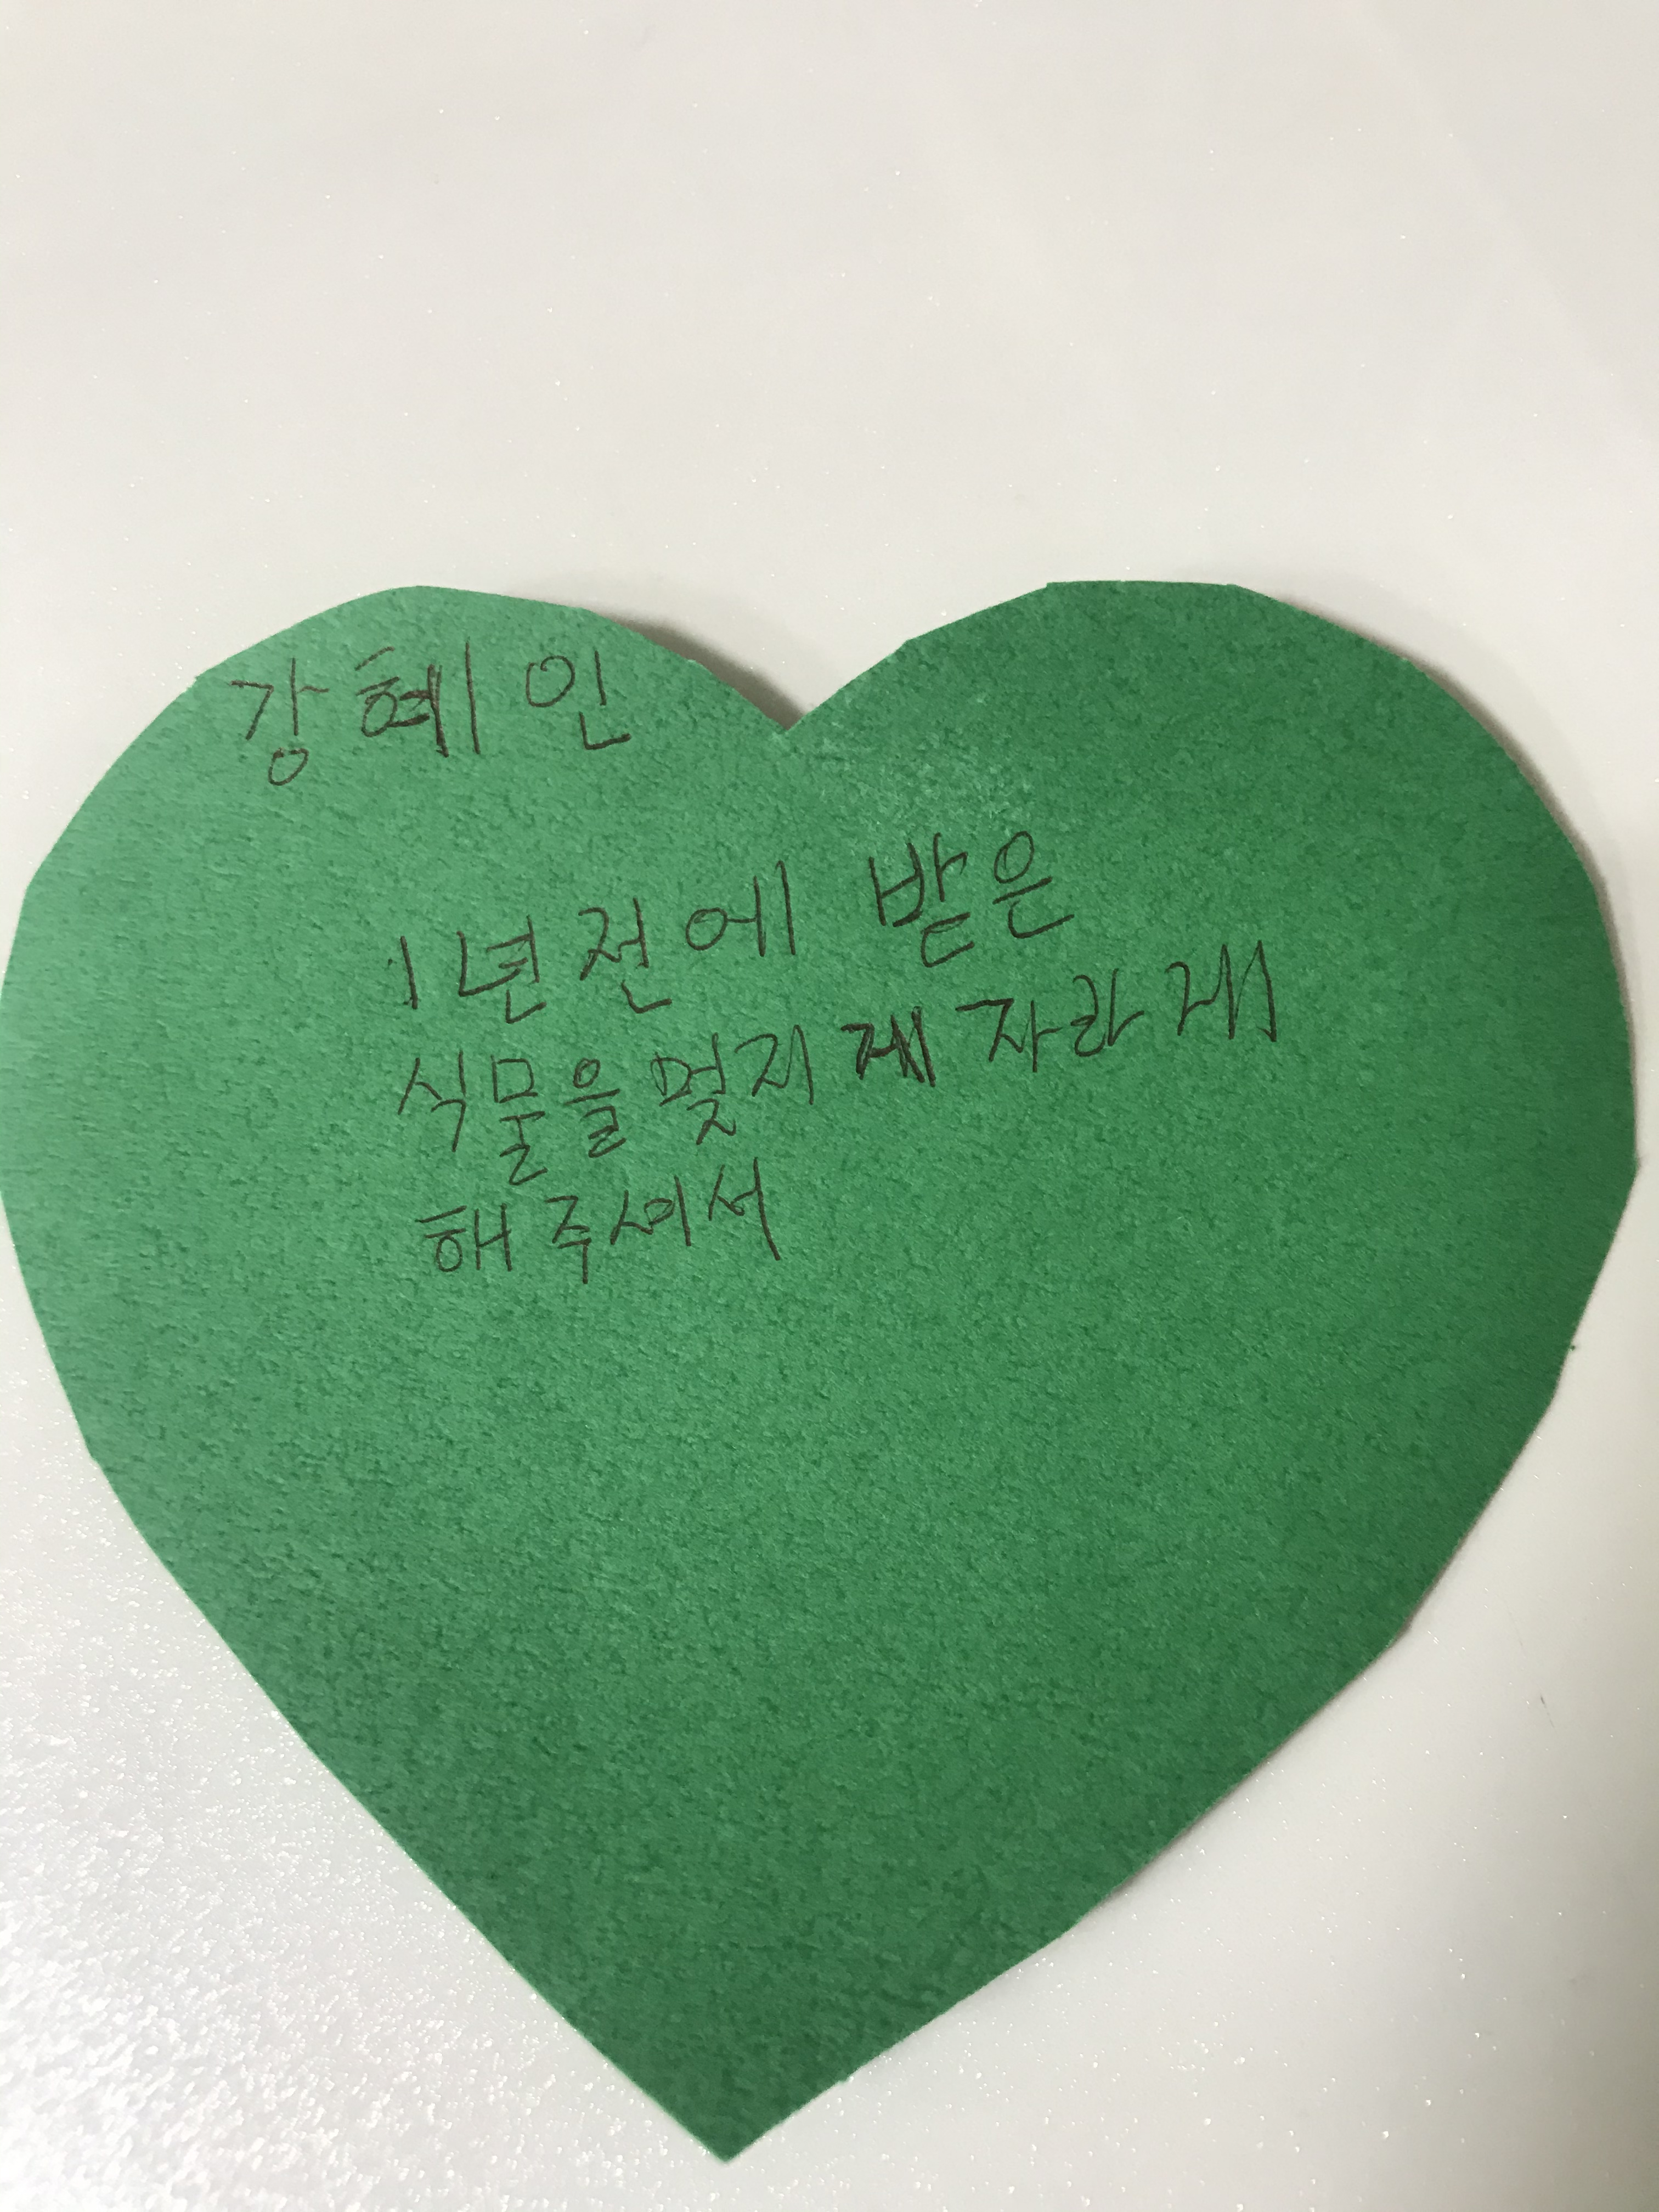 강혜인
1년전에 받은
식물을 멎지게 자라게
해 주셔서